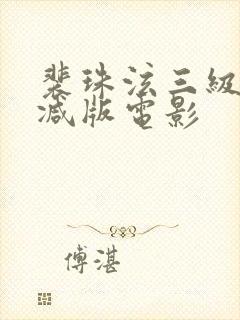 裴珠泫三級
减版電影
傅湛